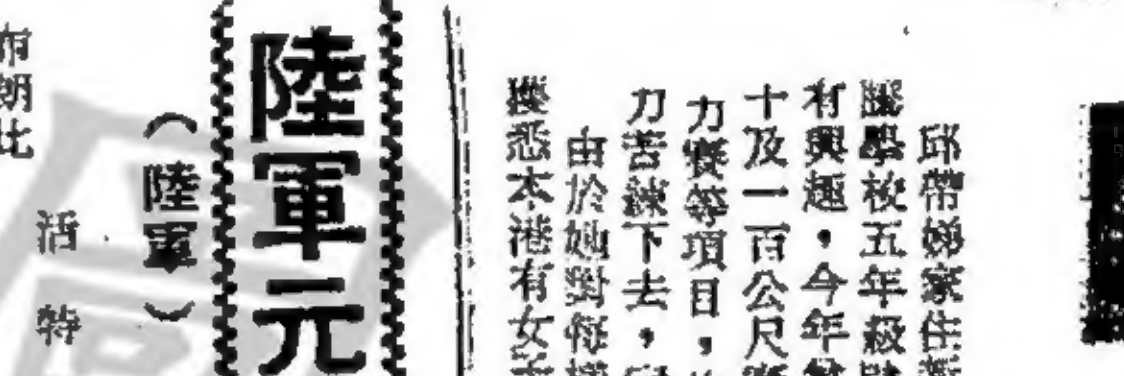 邱帶娣家住
學校五年級
有興趣，今年
十及一百公尺
力賽等項目，
力苦練下去，
由於她對每樣
獲悉本港有女
陸軍元
（陸軍）
活特
布朗比